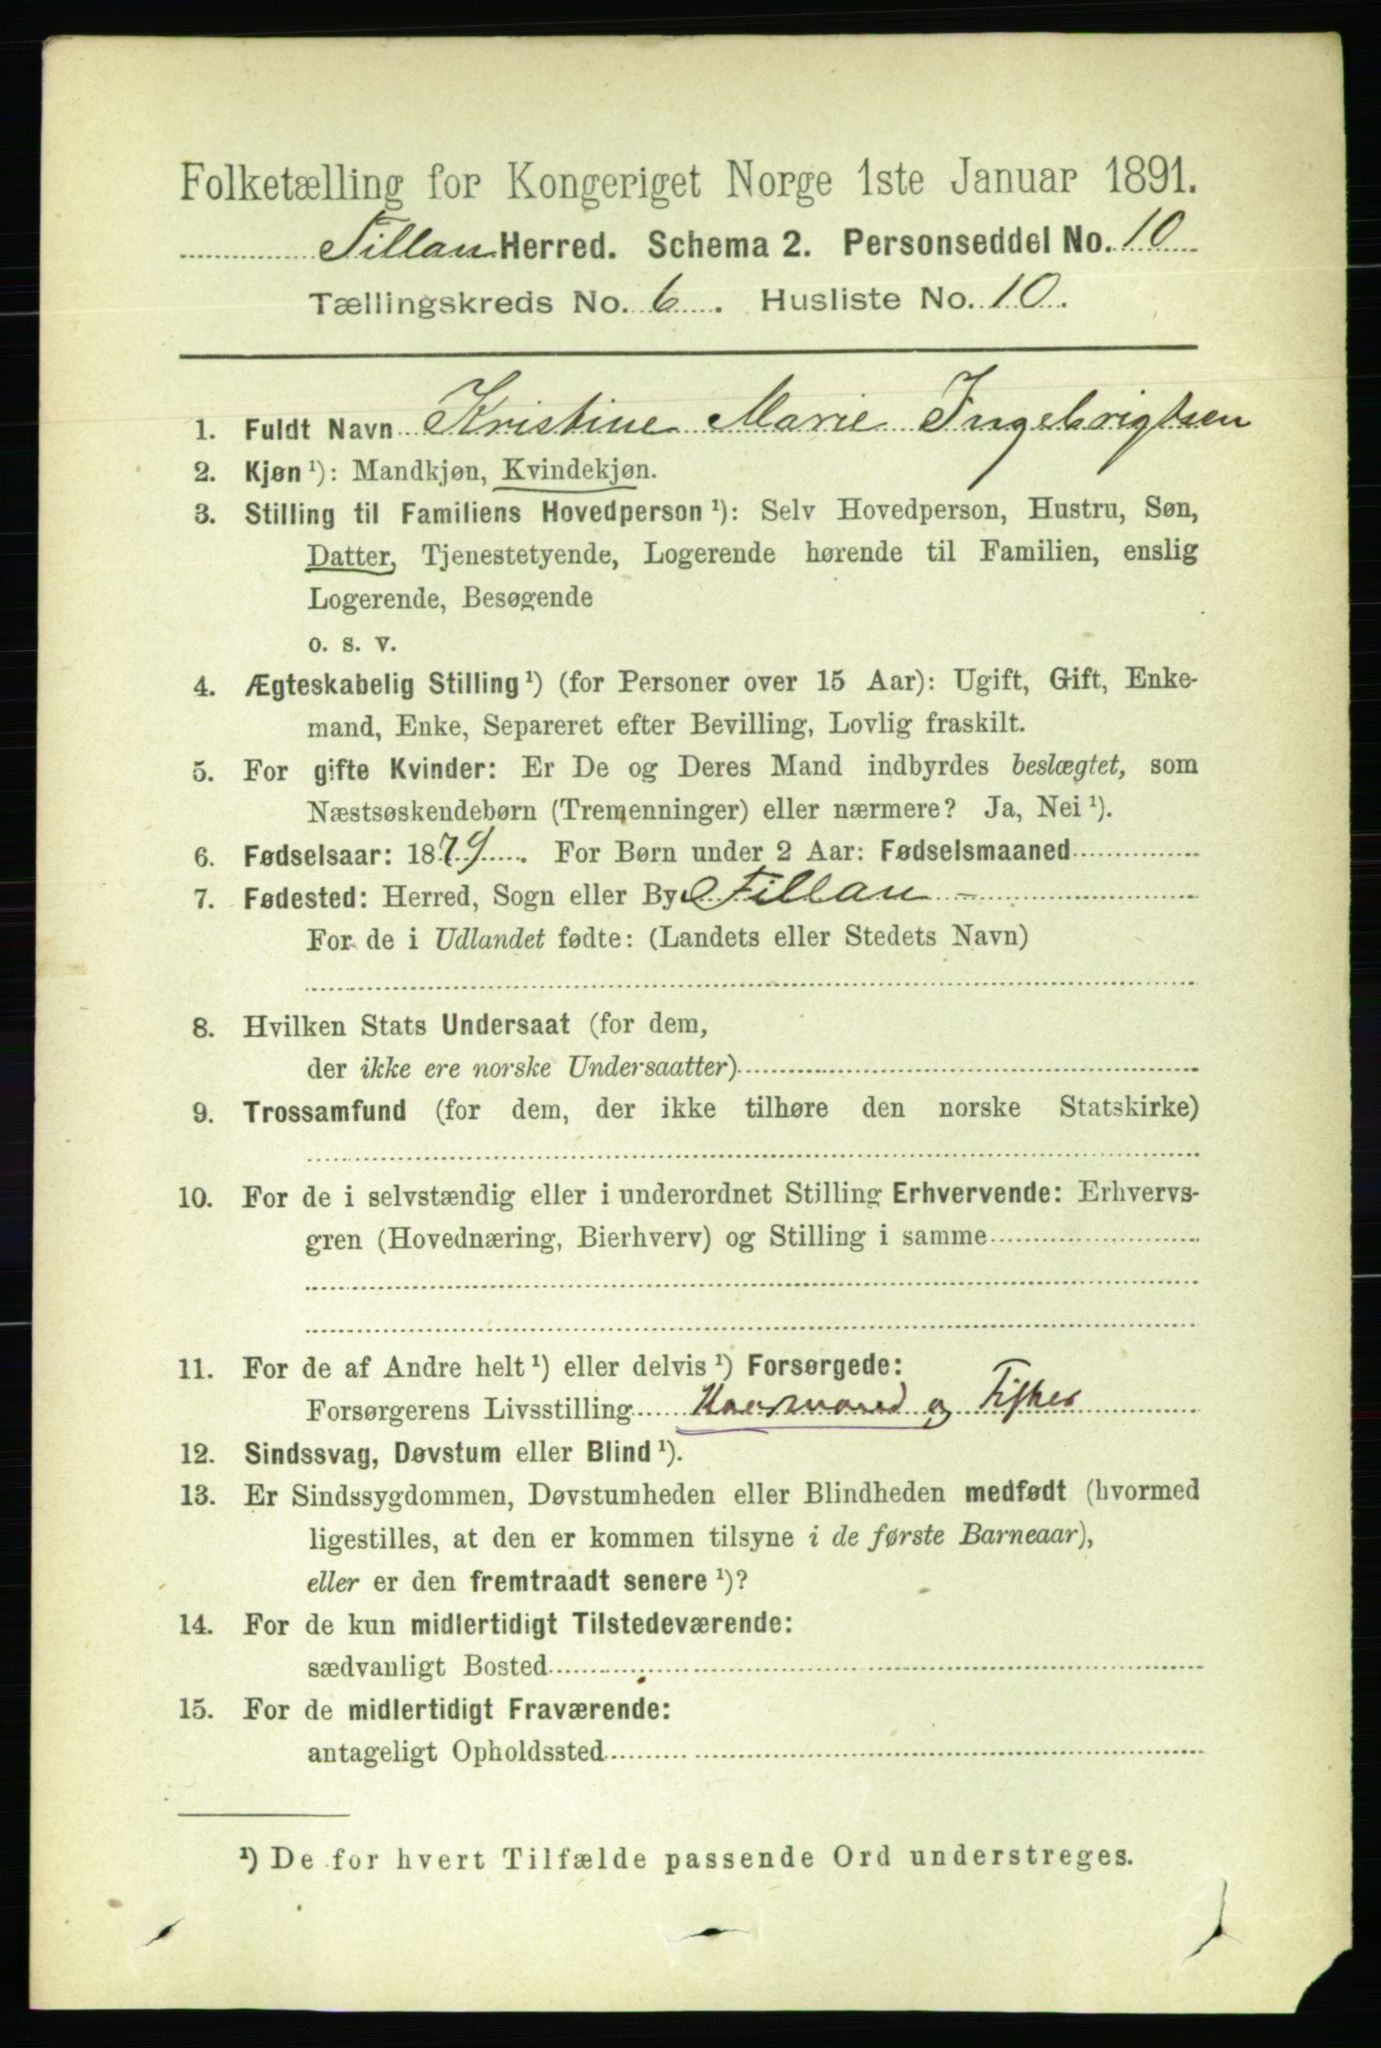 Folketælling for Kongeriget Norge 1ste Januar 1891.
Fillan Herred. Schema 2. Personseddel No. 10
Tællingskreds No. 6. Husliste No. 10.
1. Fuldt Navn Kristine Marie Ingebrigtsen
2. Kjøn ¹): Mandkjøn, Kvindekjøn.
3. Stilling til Familiens Hovedperson ¹): Selv Hovedperson, Hustru, Søn,
Datter, Tjenestetyende, Logerende hørende til Familien, enslig
Logerende, Besøgende
o. s. v.
4. Ægteskabelig Stilling ¹) (for Personer over 15 Aar): Ugift, Gift, Enke-
mand, Enke, Separeret efter Bevilling, Lovlig fraskilt.
5. For gifte Kvinder: Er De og Deres Mand indbyrdes beslægtet, som
Næstsøskendebørn (Tremenninger) eller nærmere? Ja, Nei ¹).
6. Fødselsaar: 1879. For Børn under 2 Aar: Fødselsmaaned
7. Fødested: Herred, Sogn eller By Fillan -
For de i Udlandet fødte: (Landets eller Stedets Navn)
8. Hvilken Stats Undersaat (for dem,
der ikke ere norske Undersaatter)
9. Trossamfund (for dem, der ikke tilhøre den norske Statskirke)
10. For de i selvstændig eller i underordnet Stilling Erhvervende: Erhvervs-
gren (Hovednæring, Bierhverv) og Stilling i samme
11. For de af Andre helt ¹) eller delvis ¹) Forsørgede:
Forsørgerens Livsstilling Huusmand og Fisker
12. Sindssvag, Døvstum eller Blind ¹).
13. Er Sindssygdommen, Døvstumheden eller Blindheden medfødt (hvormed
ligestilles, at den er kommen tilsyne i de første Barneaar),
eller er den fremtraadt senere ¹)?
14. For de kun midlertidigt Tilstedeværende:
sædvanligt Bosted
15. For de midlertidigt Fraværende:
antageligt Opholdssted
¹) De for hvert Tilfælde passende Ord understreges.